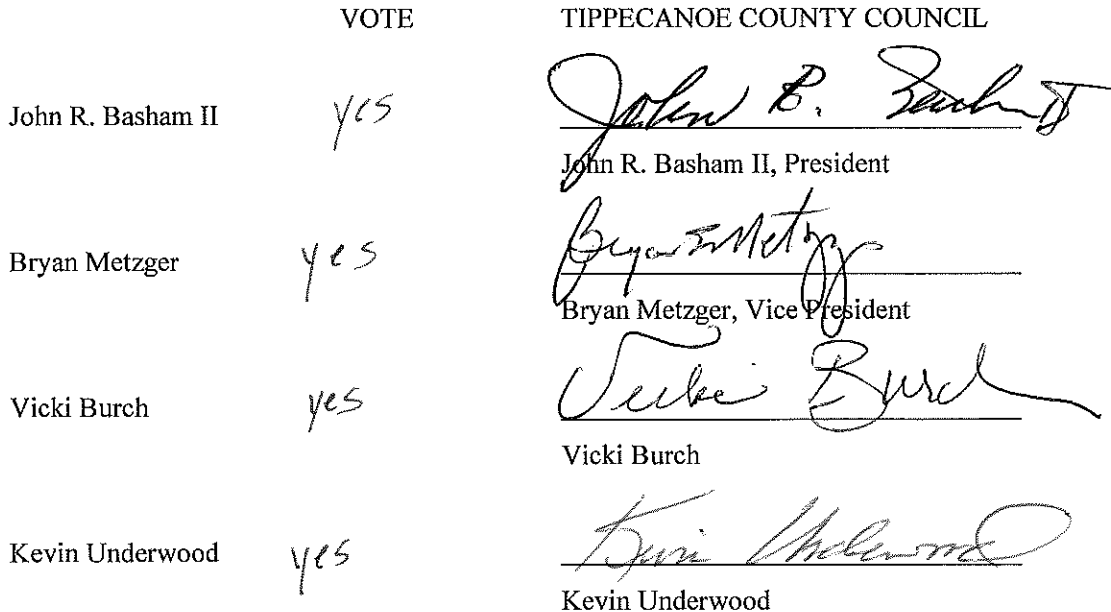 VOTE TIPPECANOE COUNTY COUNCIL
John R. Basham II yes John B.
John R. Basham II, President
Bryan Metzger yes Bryan E Metzger
Bryan Metzger, Vice President
Vicki Burch yes Vicki Burch
Vicki Burch
Kevin Underwood yes Kevin Underwood
Kevin Underwood